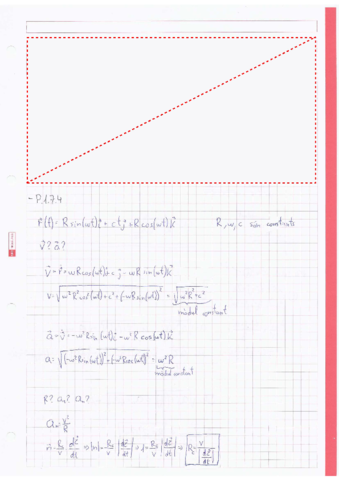 - P.1.7.4
r⃗(t) = R sin(ωt) i⃗ + c t j⃗ + R cos(ωt) k⃗    R, ω, c són constants
v⃗? a⃗?
v⃗ = r⃗' = ωR cos(ωt) i⃗ + c j⃗ - ωR sin(ωt) k⃗
v = √(ω²R² cos²(ωt) + c² + (-ωR sin(ωt))²) = √(ω²R² + c²)
mòdul constant
a⃗ = v⃗' = -ω²R sin(ωt) i⃗ - ω²R cos(ωt) k⃗
a = √((-ω²R sin(ωt))² + (-ω²R cos(ωt))²) = ω²R
mòdul constant
R? aₙ? aₜ?
aₙ = v²/R
n⃗ = R/v dτ⃗/dt ⇒ |n⃗| = R/v |dτ⃗/dt| ⇒ 1 = R/v |dτ⃗/dt| ⇒ R = v/|dτ⃗/dt|